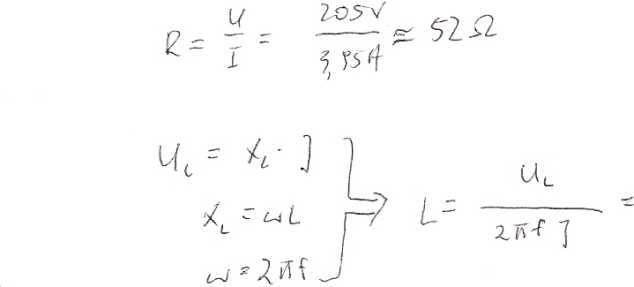 R = U/I = 205V/3,95A ≈ 52 Ω
U_L = X_L · I
X_L = ωL
ω = 2πf
⇒ L = U_L/(2πf I) =